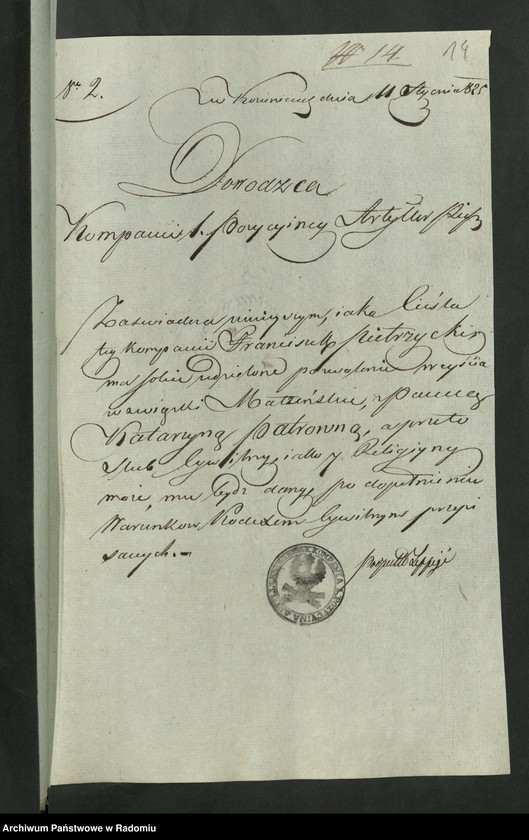 № 14. 14
Nro 2.
w Kozienicach dnia 11 Stycznia 1825
Dowodzca
Kompanii 1. Pozycyiney Artyllerii Pieszey
Zaswiadcza ninieyszym, iako Ciesla
tey kompanii Franciszek Pietrzycki
ma sobie udzielone pozwolenie weyscia
w zwiąski Małzeńskie, z Panną
Katarzyną Piatrowną, a przeto
Slub Cywilny iako y Religiyny
może mu bydz dany, po dopełnieniu
Warunkow Kodexem Cywilnym przepi
sanych. –
KOMPANIA POZYCYINA
Archiwum Państwowe w Radomiu